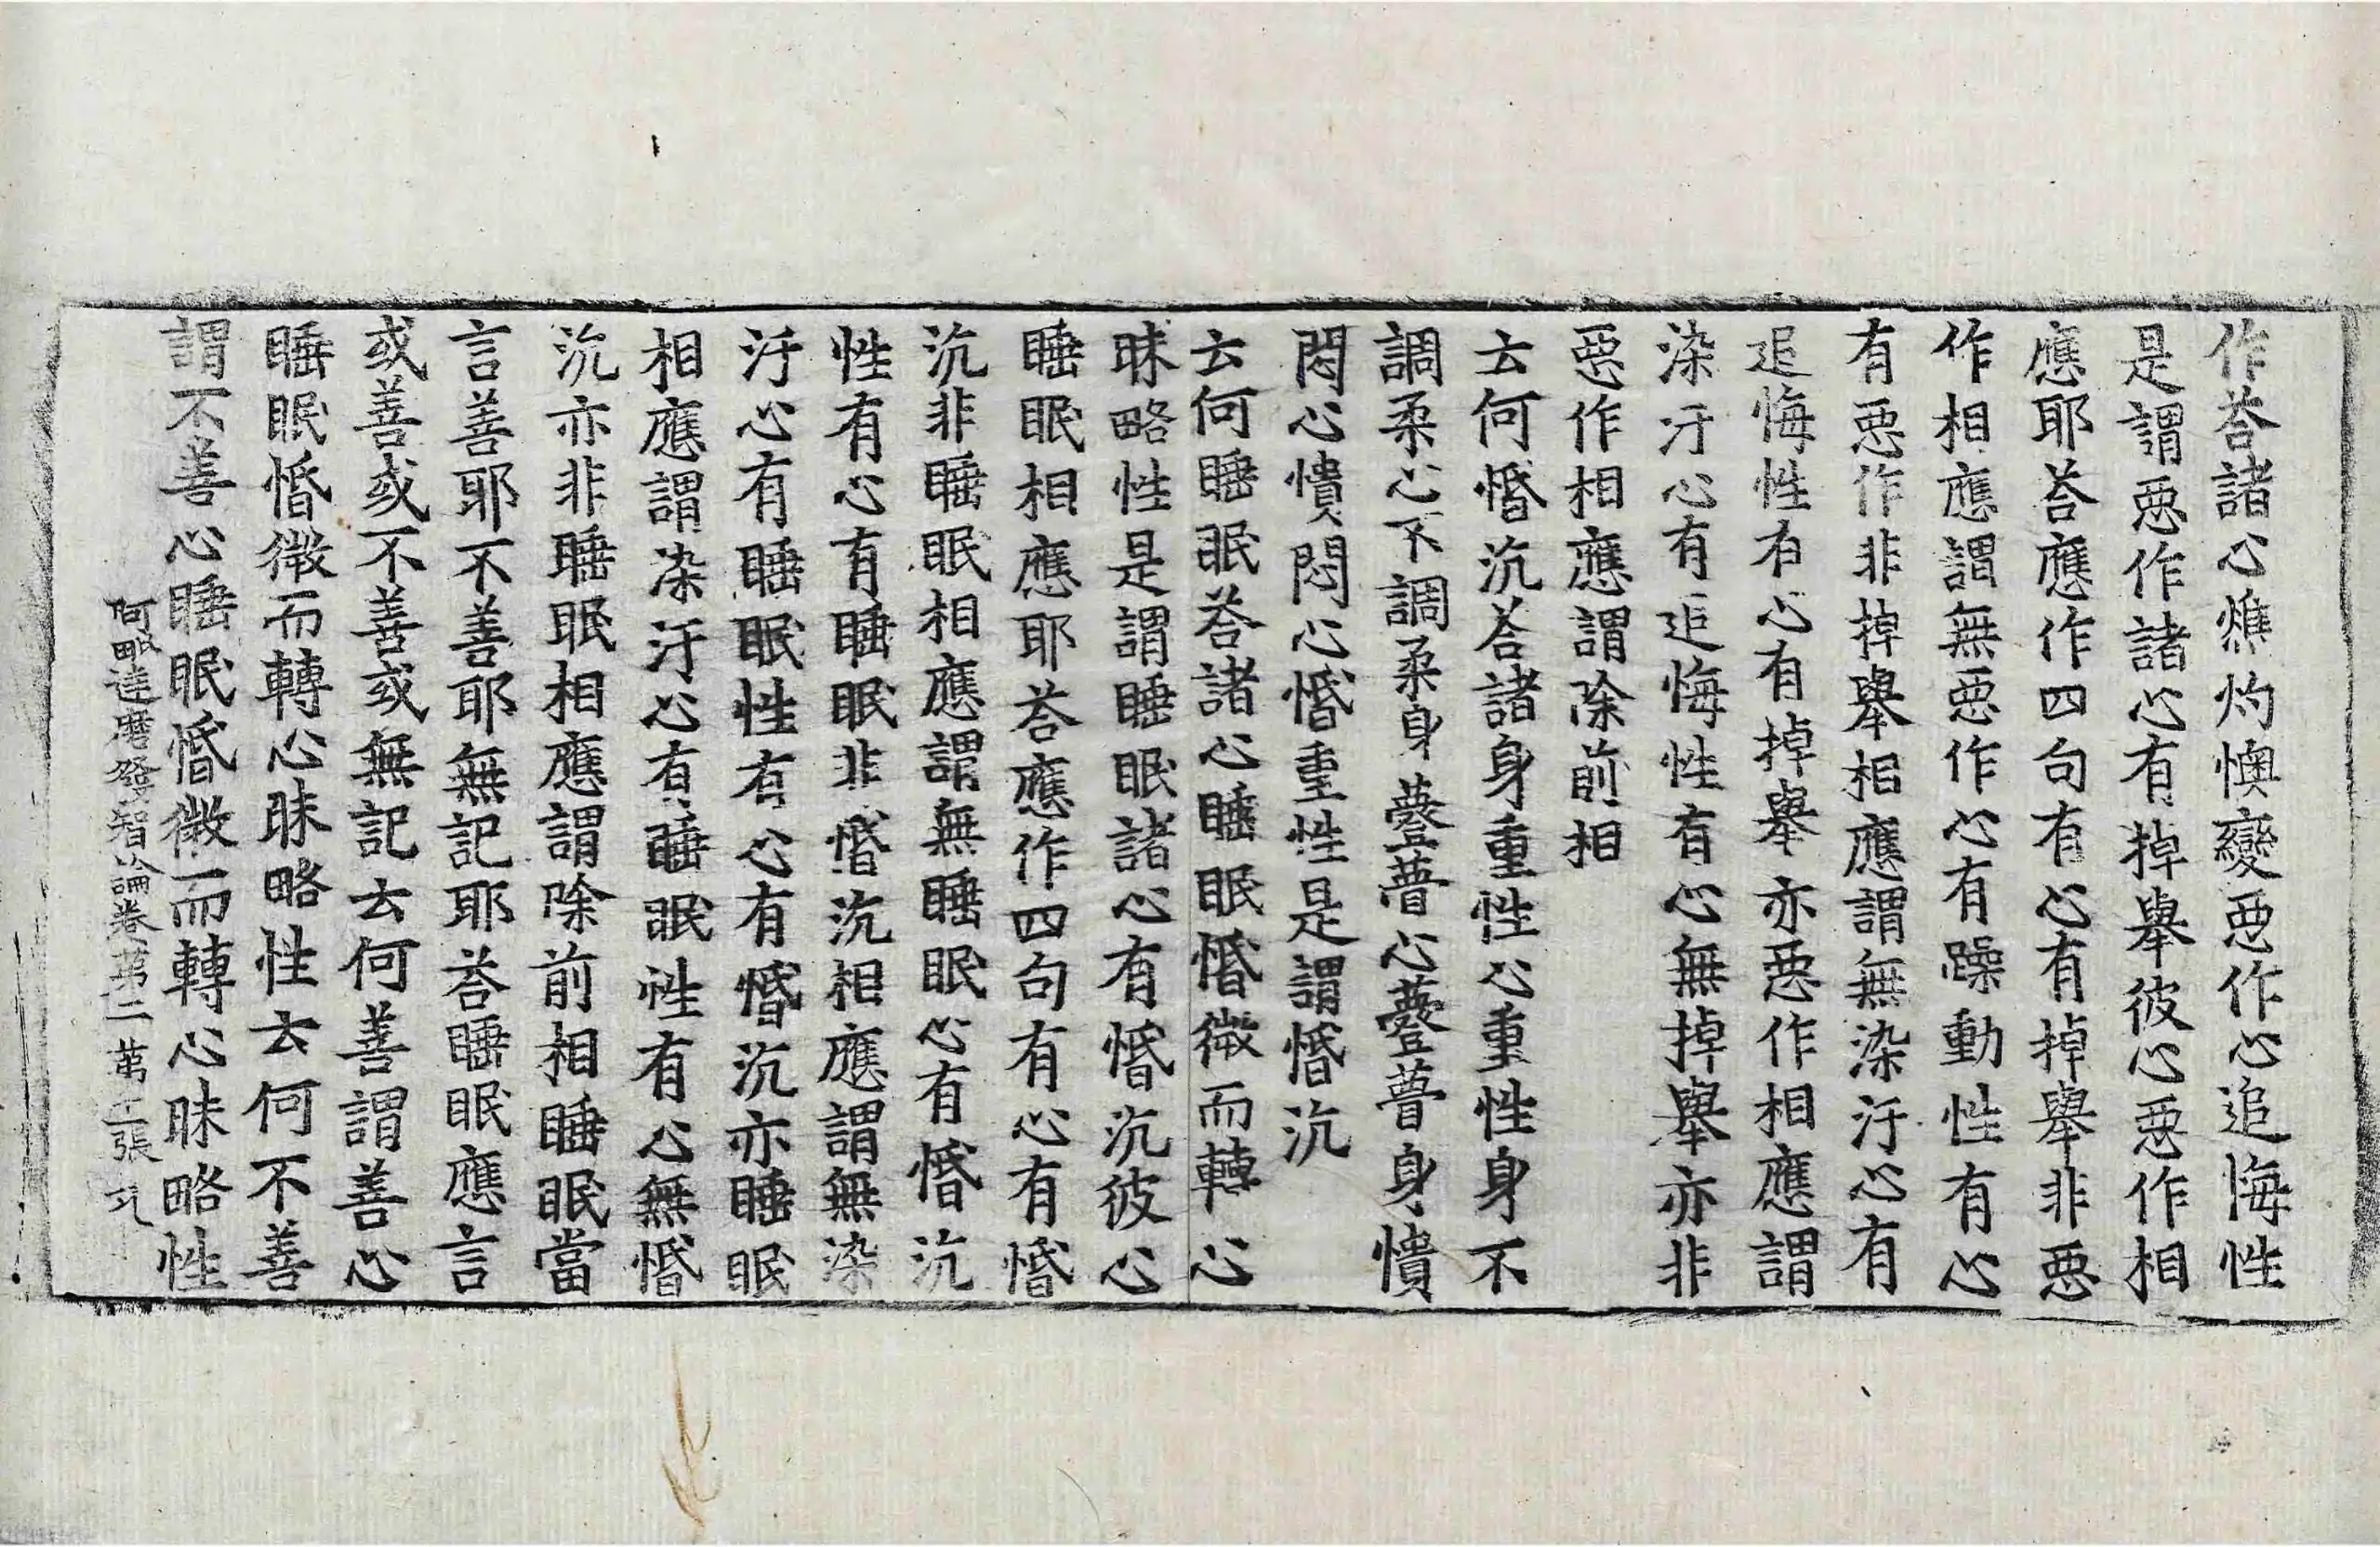 作荅諸心燋灼懊變惡作心追悔性
是謂惡作諸心有掉舉彼心惡作相
應耶荅應作四句有心有掉舉非惡
作相應謂無惡作心有躁動性有心
有惡作非掉舉相應謂無染汙心有
追悔性有心有掉舉亦惡作相應謂
染汙心有追悔性有心無掉舉亦非
惡作相應謂除前相
云何惛沉荅諸身重性心重性身不
調柔心不調柔身㽄瞢心㽄瞢身憒
悶心憒悶心惛重性是謂惛沉
云何睡眠荅諸心睡眠惛微而轉心
昧略性是謂睡眠諸心有惛沉彼心
睡眠相應耶荅應作四句有心有惛
沉非睡眠相應謂無睡眠心有惛沉
性有心有睡眠非惛沉相應謂無染
汙心有睡眠性有心有惛沉亦睡眠
相應謂染汙心有睡眠性有心無惛
沉亦非睡眠相應謂除前相睡眠當
言善耶不善耶無記耶荅睡眠應言
或善或不善或無記云何善謂善心
睡眠惛微而轉心昧略性云何不善
謂不善心睡眠惛微而轉心昧略性
阿毗達磨發智論卷第二 第二張